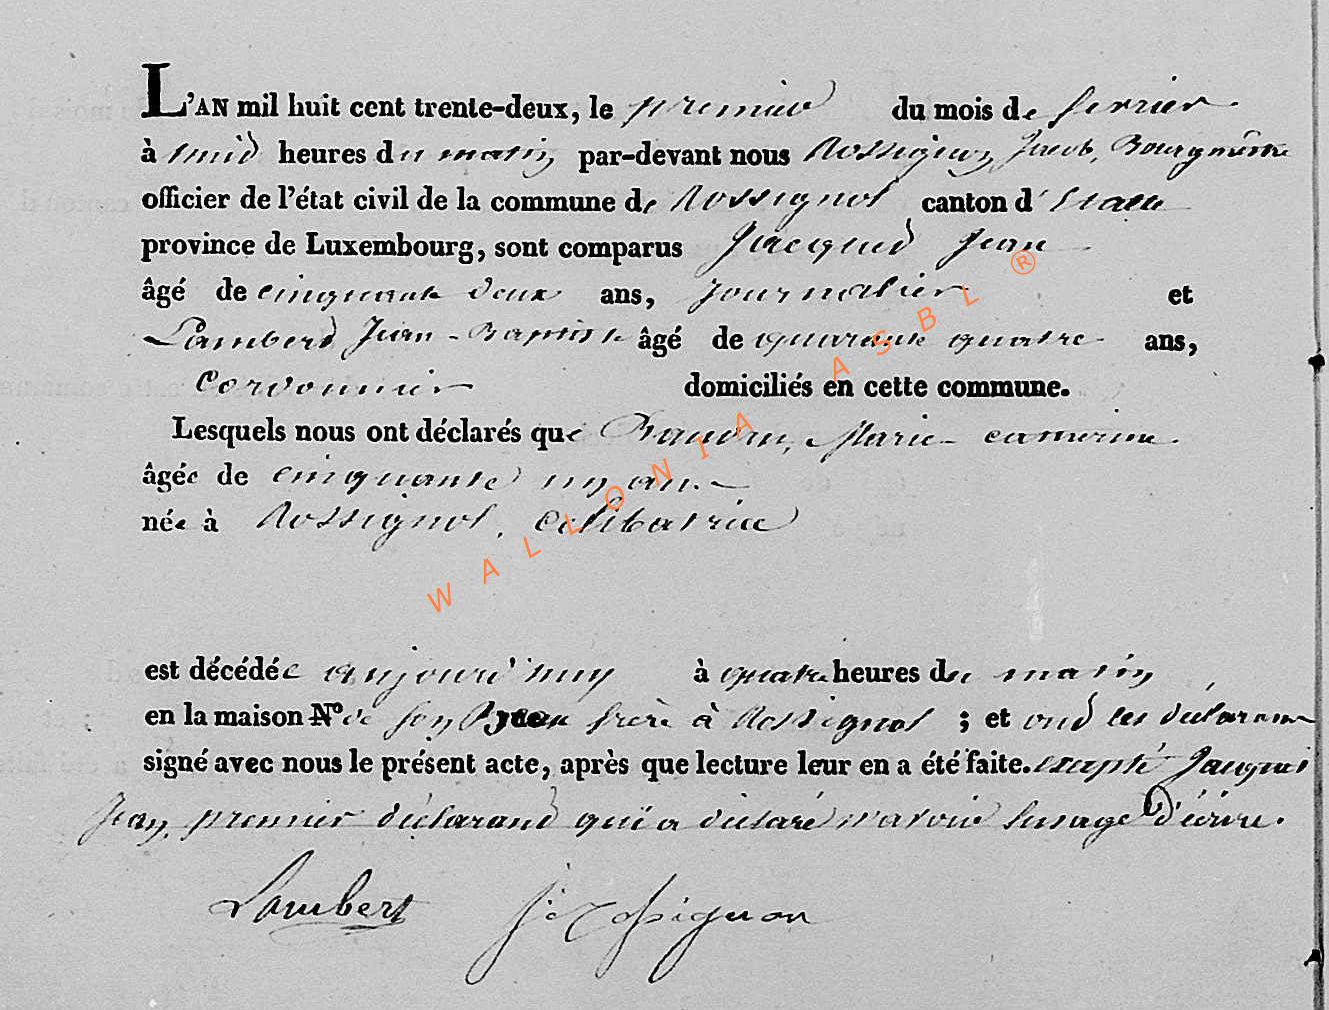 L'AN mil huit cent trente-deux, le premier du mois de fevrier
à midi heures du matin par-devant nous Rossignon Jacob, Bourgmestre
officier de l'état civil de la commune de Rossignol canton d'Etalle
province de Luxembourg, sont comparus Jacques Jean
âgé de cinquante deux ans, journalier et
Lambert Jean-Baptiste âgé de quarante quatre ans,
Cordonnier domiciliés en cette commune.
Lesquels nous ont déclarés que Marie catherine.
âgée de cinquante un an.
née à Rossignol, Celibatrice
est décédée aujourd'huy à quatre heures du matin
en la maison N° de son frère à Rossignol ; et ond les déclarans
signé avec nous le présent acte, après que lecture leur en a été faite. excepté Jacques
Jean, premier déclarand qui a déclaré n'avoir l'usage d'écrire.
Lambert J. Rossignon
WALLONIA ASBL ®